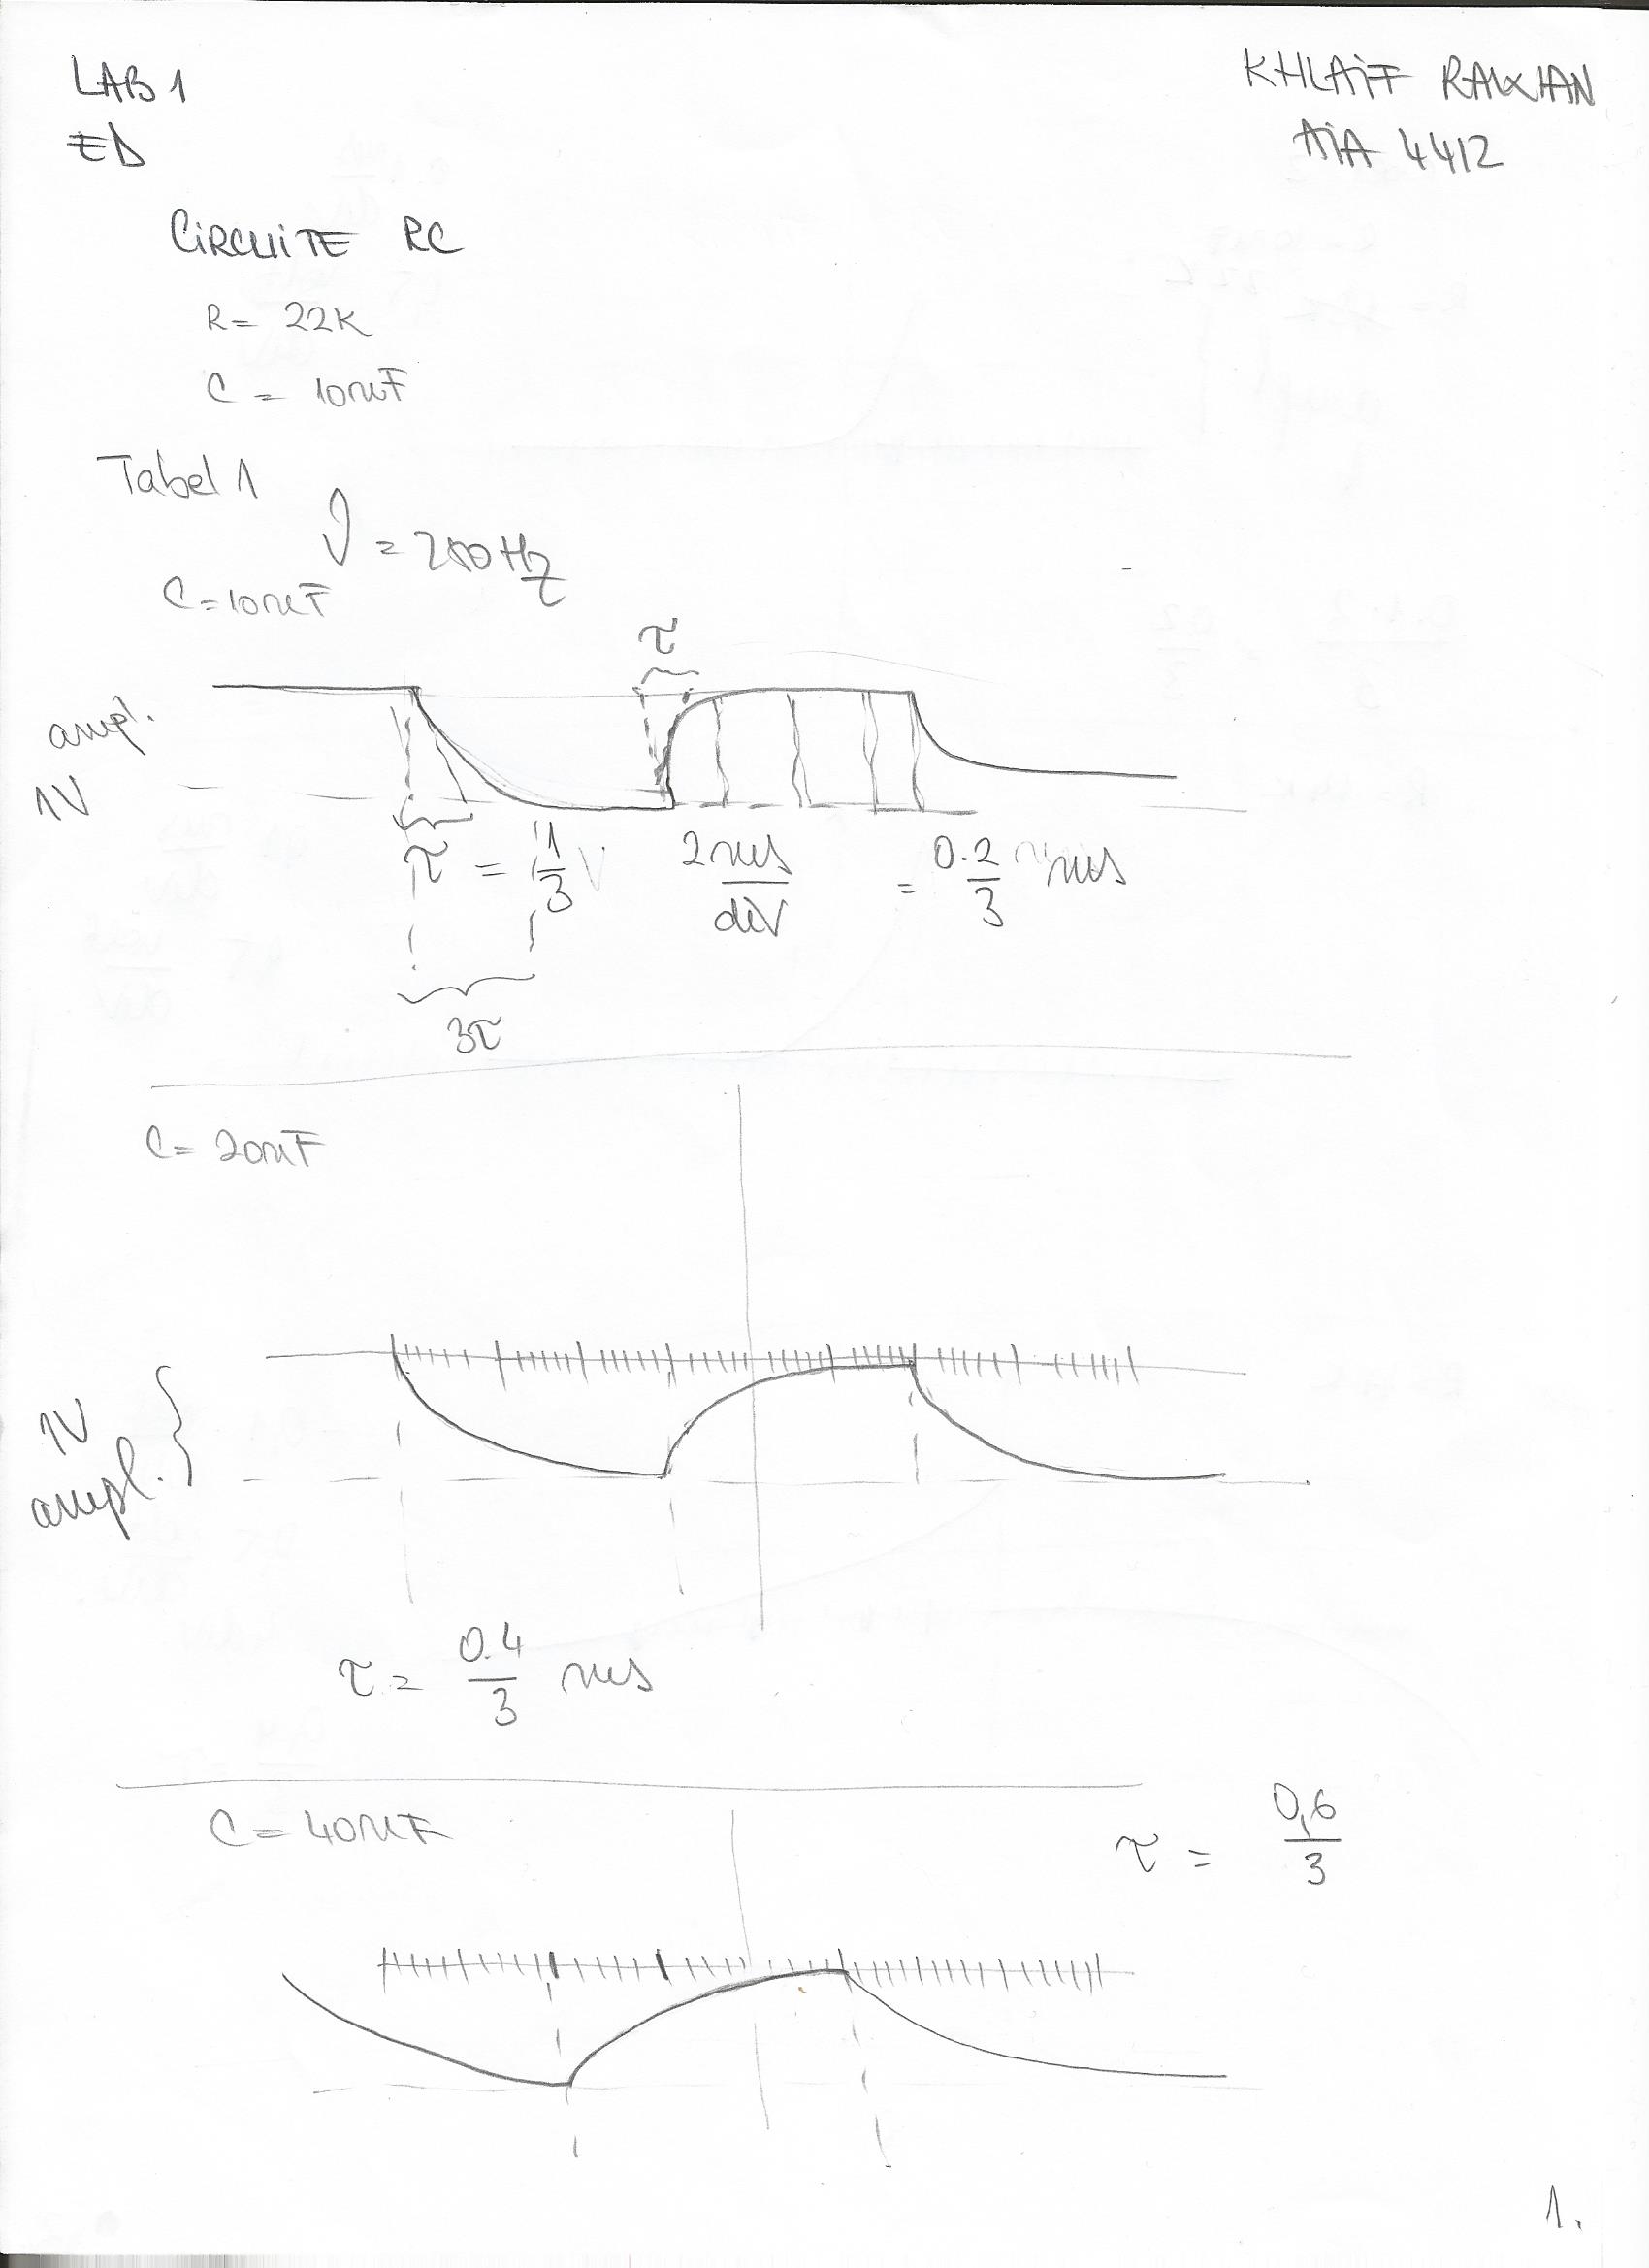 LAB 1
KHLAIF RAWAN
ED
AIA 4412
CIRCUITE RC
R = 22K
C = 10nF
Tabel 1
ν = 200 Hz
C = 10nF
τ
ampl.
1V
τ = 1/3 2ms/div = 0.2/3 ms
3τ
C = 20nF
1V
ampl.
τ = 0.4/3 ms
C = 40nF
τ = 0,6/3
1.